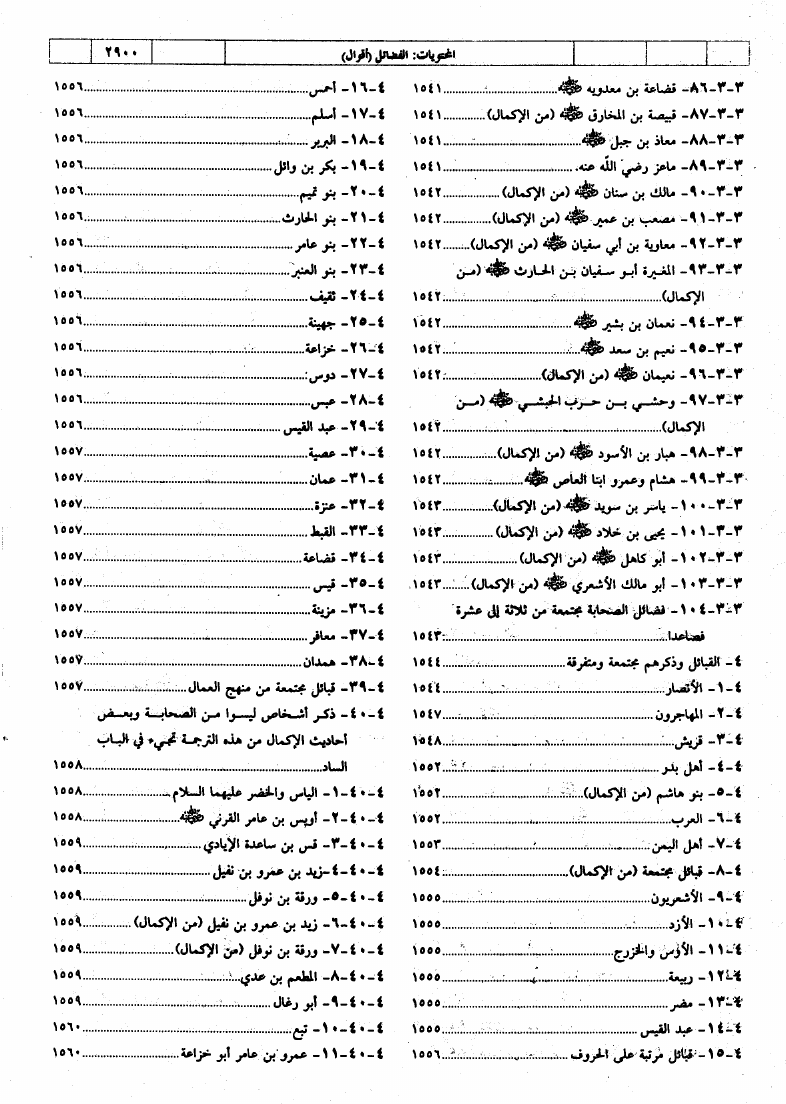 المحتويات: الفضائل (أقوال) ٢٩٠٠
٣-٣-٨٦- قضاعة بن معدويه ﷺ ١٥٤١
٣-٣-٨٧- قبيصة بن المخارق ﷺ (من الإكمال) ١٥٤١
٣-٣-٨٨- معاذ بن جبل ﷺ ١٥٤١
٣-٣-٨٩- ماعز رضي الله عنه. ١٥٤١
٣-٣-٩٠- مالك بن سنان ﷺ (من الإكمال) ١٥٤٢
٣-٣-٩١- مصعب بن عمير ﷺ (من الإكمال) ١٥٤٢
٣-٣-٩٢- معاوية بن أبي سفيان ﷺ (من الإكمال) ١٥٤٢
٣-٣-٩٣- المغيرة أبو سفيان بن الحارث ﷺ (من
الإكمال) ١٥٤٢
٣-٣-٩٤- نعمان بن بشير ﷺ ١٥٤٢
٣-٣-٩٥- نعيم بن سعد ﷺ ١٥٤٢
٣-٣-٩٦- نعيمان ﷺ (من الإكمال) ١٥٤٢
٣-٣-٩٧- وحشي بن حرب الحبشي ﷺ (من
الإكمال) ١٥٤٢
٣-٣-٩٨- هبار بن الأسود ﷺ (من الإكمال) ١٥٤٢
٣-٣-٩٩- هشام وعمرو ابنا العاص ﷺ ١٥٤٢
٣-٣-١٠٠- ياسر بن سويد ﷺ (من الإكمال) ١٥٤٣
٣-٣-١٠١- يحيى بن خلاد ﷺ (من الإكمال) ١٥٤٣
٣-٣-١٠٢- أبو كاهل ﷺ (من الإكمال) ١٥٤٣
٣-٣-١٠٣- أبو مالك الأشعري ﷺ (من الإكمال) ١٥٤٣
٣-٣-١٠٤- فضائل الصحابة مجتمعة من ثلاثة إلى عشرة
فصاعدا ١٥٤٣
٤- القبائل وذكرهم مجتمعة ومتفرقة ١٥٤٤
٤-١- الأنصار ١٥٤٤
٤-٢- المهاجرون ١٥٤٧
٤-٣- قريش ١٥٤٨
٤-٤- أهل بدر ١٥٥٢
٤-٥- بنو هاشم (من الإكمال) ١٥٥٢
٤-٦- العرب ١٥٥٢
٤-٧- أهل اليمن ١٥٥٣
٤-٨- قبائل مجتمعة (من الإكمال) ١٥٥٤
٤-٩- الأشعريون ١٥٥٥
٤-١٠- الأزد ١٥٥٥
٤-١١- الأوس والخزرج ١٥٥٥
٤-١٢- ربيعة ١٥٥٥
٤-١٣- مضر ١٥٥٥
٤-١٤- عبد القيس ١٥٥٥
٤-١٥- قبائل مرتبة على الحروف ١٥٥٦
٤-١٦- أحمس ١٥٥٦
٤-١٧- أسلم ١٥٥٦
٤-١٨- البربر ١٥٥٦
٤-١٩- بكر بن وائل ١٥٥٦
٤-٢٠- بنو تميم ١٥٥٦
٤-٢١- بنو الحارث ١٥٥٦
٤-٢٢- بنو عامر ١٥٥٦
٤-٢٣- بنو العنبر ١٥٥٦
٤-٢٤- ثقيف ١٥٥٦
٤-٢٥- جهينة ١٥٥٦
٤-٢٦- خزاعة ١٥٥٦
٤-٢٧- دوس ١٥٥٦
٤-٢٨- عبس ١٥٥٦
٤-٢٩- عبد القيس ١٥٥٦
٤-٣٠- عصية ١٥٥٧
٤-٣١- عمان ١٥٥٧
٤-٣٢- عنزة ١٥٥٧
٤-٣٣- القبط ١٥٥٧
٤-٣٤- قضاعة ١٥٥٧
٤-٣٥- قيس ١٥٥٧
٤-٣٦- مزينة ١٥٥٧
٤-٣٧- معافر ١٥٥٧
٤-٣٨- همدان ١٥٥٧
٤-٣٩- قبائل مجتمعة من منهج العمال ١٥٥٧
٤-٤٠- ذكر أشخاص ليسوا من الصحابة وبعض
أحاديث الإكمال من هذه الترجمة تجيء في الباب
الساد ١٥٥٨
٤-٤٠-١- الياس والخضر عليهما السلام ١٥٥٨
٤-٤٠-٢- أويس بن عامر القرني ﷺ ١٥٥٨
٤-٤٠-٣- قس بن ساعدة الإيادي ١٥٥٩
٤-٤٠-٤-زيد بن عمرو بن نفيل ١٥٥٩
٤-٤٠-٥- ورقة بن نوفل ١٥٥٩
٤-٤٠-٦- زيد بن عمرو بن نفيل (من الإكمال) ١٥٥٩
٤-٤٠-٧- ورقة بن نوفل (من الإكمال) ١٥٥٩
٤-٤٠-٨- المطعم بن عدي ١٥٥٩
٤-٤٠-٩- أبو رغال ١٥٥٩
٤-٤٠-١٠- تبع ١٥٦٠
٤-٤٠-١١- عمرو بن عامر أبو خزاعة ١٥٦٠